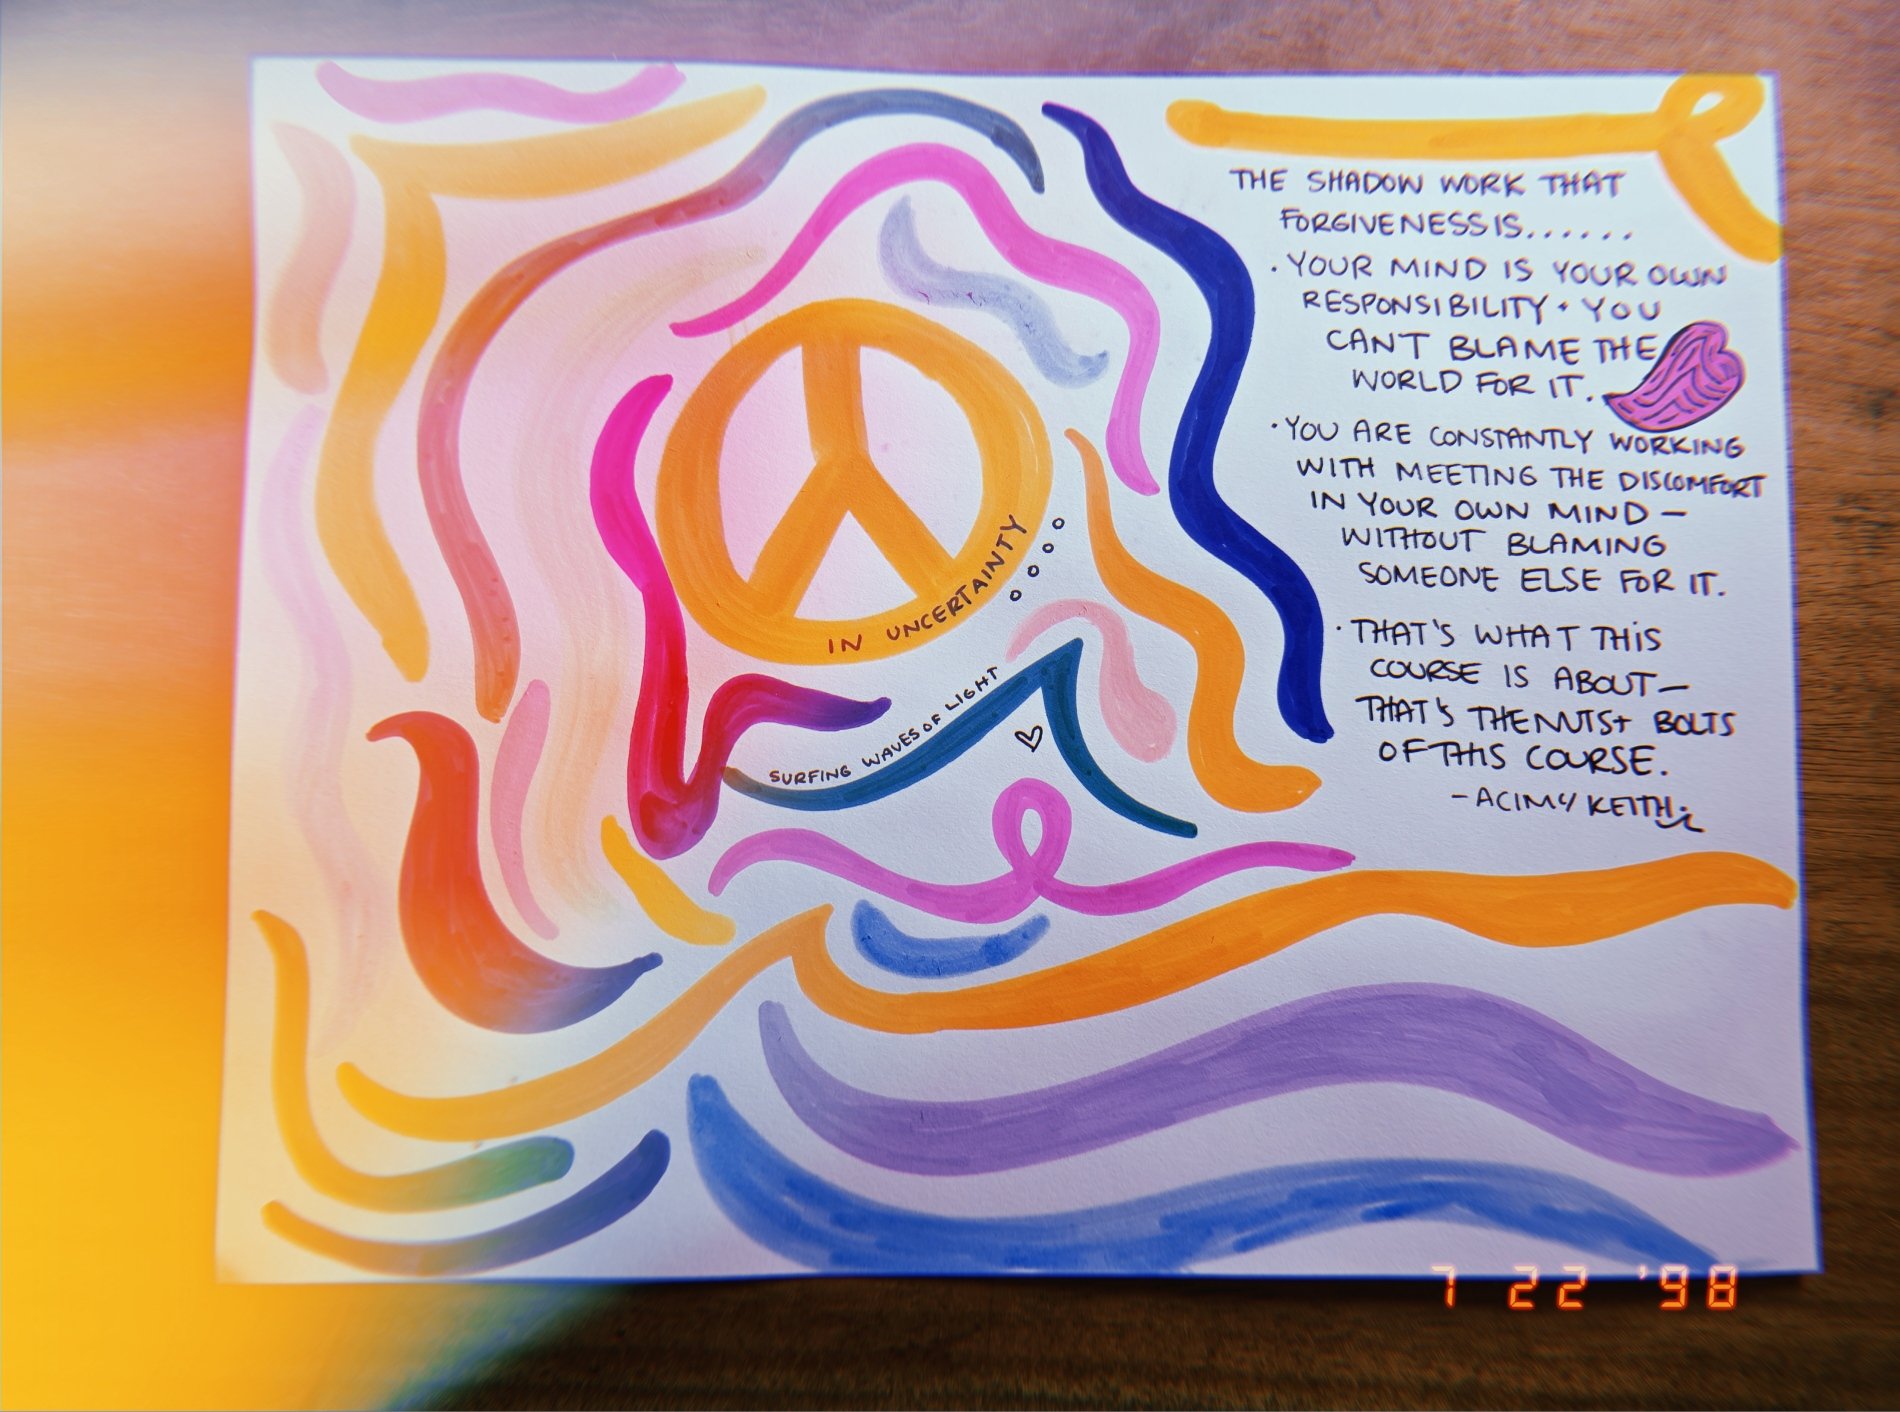 THE SHADOW WORK THAT
FORGIVENESS IS......
• YOUR MIND IS YOUR OWN
RESPONSIBILITY + YOU
CAN'T BLAME THE
WORLD FOR IT.
• YOU ARE CONSTANTLY WORKING
WITH MEETING THE DISCOMFORT
IN YOUR OWN MIND —
WITHOUT BLAMING
SOMEONE ELSE FOR IT.
• THAT'S WHAT THIS
COURSE IS ABOUT —
THAT'S THE NUTS + BOLTS
OF THIS COURSE.
IN UNCERTAINTY
SURFING WAVES OF LIGHT
- ACIM w/ KEITH
7 22 '98